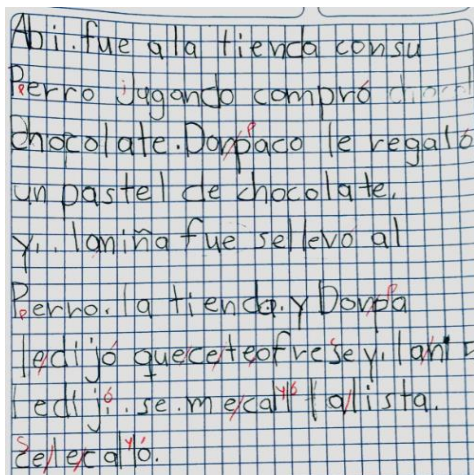 Abi. fue alla tienda consu
Perro jugando compró
chocolate. Donpaco le regaló
un pastel de chocolate.
y... laniña fue sellevo al
Perro. la tienda. y Donpa
ledijó queceteofrese y. lani
ledijo. se. mecalló lalista.
celecalló.